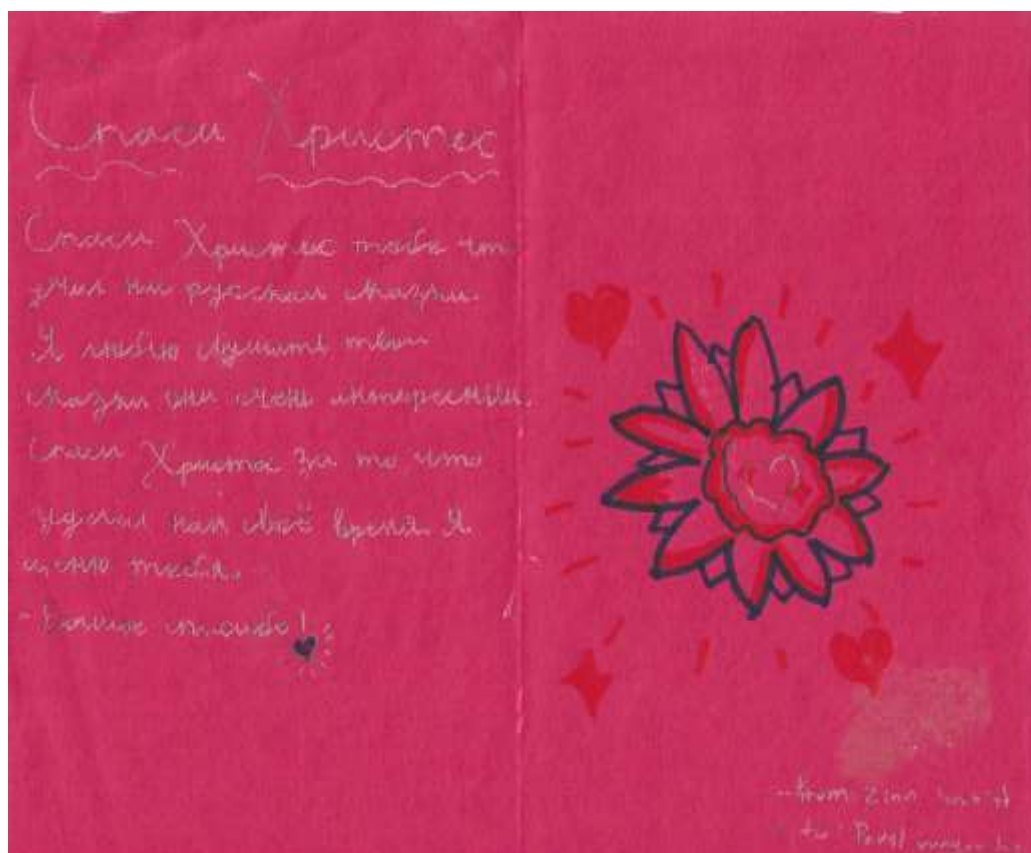 Спаси Христос
Спаси Христос тебя что
учил ни русскаи сказки.
Я люблю слушить твои
сказки они очень интереснии.
Спаси Христос за то что
уделил нам своё время. Я
ценю тебя.
- Большое спасибо!
-- from: Zina
to: Pavel